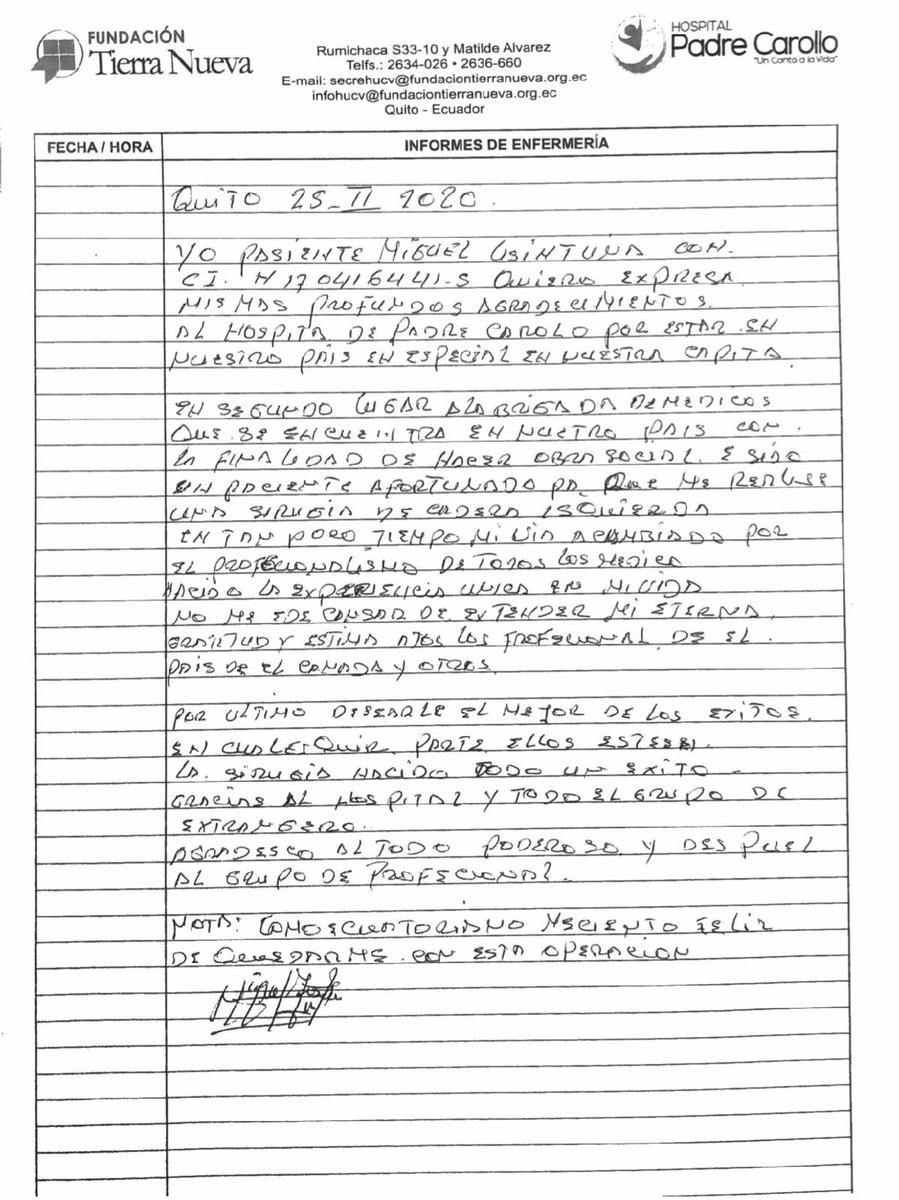 FUNDACIÓN
Tierra Nueva
Rumichaca S33-10 y Matilde Alvarez
Telfs.: 2634-026 • 2636-660
E-mail: secrehucv@fundaciontierranueva.org.ec
infohucv@fundaciontierranueva.org.ec
Quito - Ecuador
HOSPITAL
Padre Carollo
"Un Canto a la Vida"
FECHA / HORA
INFORMES DE ENFERMERÍA
QUITO 25-II 2020.
YO PASIENTE MIGUEL USINTUÑA CON.
CI. N 170416441-5 QUIERO EXPRESA
MIS MAS PROFUNDOS AGRADECIMIENTOS.
AL HOSPITA DE PADRE CAROLO POR ESTAR EN
NUESTRO PAIS EN ESPECIAL EN NUESTRA CAPITA
EN SEGUNDO LUGAR ALA BRIGADA DE MEDICOS
QUE SE ENCUENTRA EN NUETRO PAIS CON.
LA FINALIDAD DE HACER OBRA SOCIAL. E SIDO
UN PACIENTE AFORTUNADO PA QUE ME REALISE
UNA SIRUGIA DE CADERA ISQUIERDA
EN TAN POCO TIEMPO MI VIA ACAMBIADO POR
EL PROFECIONALISMO DE TODOS LOS MEDICO
HACIDO LA EXPERIENCIA UNICA EN MI VIDA
NO ME CANSAR DE EXTENDER MI ETERNA
GRATITUD Y ESTIMA LOS PROFECIONAL DE EL.
PAIS DE EL CANADA Y OTROS.
POR ULTIMO DESEARLE EL MEJOR DE LOS EXITOS.
EN CUALESQUIR PARTE ELLOS ESTEEN.
LA. SIRUGIA HACIDO TODO UN EXITO -
GRACIAS AL HOSPITAL Y TODO EL GRUPO DE
EXTRANGERO.
AGRADESCO AL TODO PODEROSO Y DESPUEL
AL GRUPO DE PROFECIONAL.
NOTA: COMO ECUATORIANO MECIENTO FELIZ
DE QUEDARME CON ESTA OPERACION